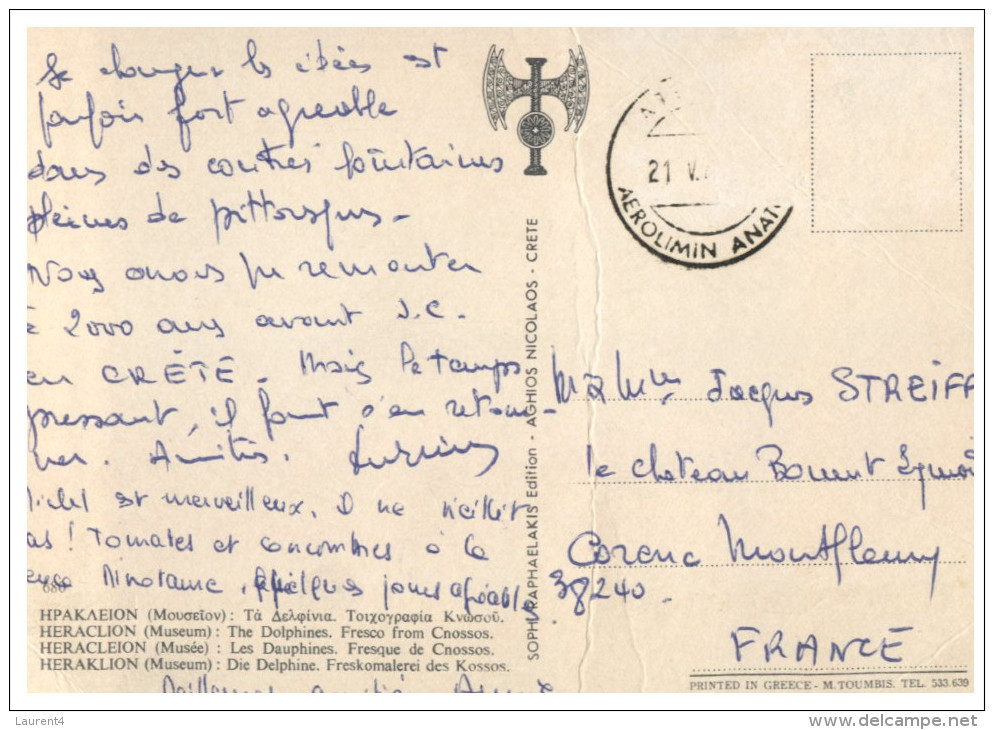 Se changer les idées est
parfois fort agréable
dans des contrées lointaines
pleines de pittoresques -
Nous avons pu remonter
à 2000 ans avant J.C.
en CRÈTE. Mais le temps
pressant, il faut s'en retour-
ner. Amitiés.
Michel est merveilleux. Il ne vieillit
pas! Tomates et concombres à la
Minotaure, quelques jours agréables.
686
ΗΡΑΚΛΕΙΟΝ (Μουσεῖον): Τὰ Δελφίνια. Τοιχογραφία Κνωσοῦ.
HERACLION (Museum): The Dolphines. Fresco from Cnossos.
HERACLEION (Musée): Les Dauphines. Fresque de Cnossos.
HERAKLION (Museum): Die Delphine. Freskomalerei des Kossos.
amitiés
SOPHI RAPHAELAKIS Edition - AGHIOS NICOLAOS - CRETE
21 V.
AEROLIMIN ANAT
M & Mme Jacques STREIFF
le chateau
Corenc Montfleury
38240.
FRANCE
PRINTED IN GREECE - M. TOUMBIS. TEL. 533.639
Laurent4
www.delcampe.net